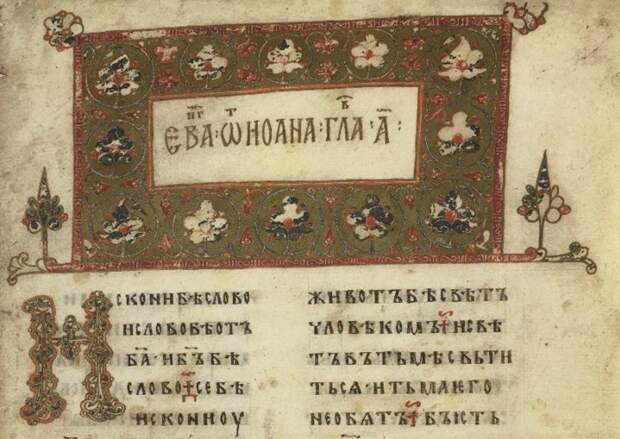 ЕВАⷩ҇ⷢ҇·Ѡⷮ҇ИОАНА·ГЛАⷡ҇·А҃:
ИСКОНИБѢСЛОВО
ИСЛОВОБѢОТЪ
Б҃А·ИБ҃ЪБѢ
СЛОВО СЕБѢ
ИСКОНИОУ
ЖИВОТЪБѢСВѢТЪ
ЧЛОВѢКОМЪ ИСВѢ
ТЪВЪТЬМѢСВЬТИ
ТЬСѦ·ИТЬМАЕГО
НЕОБѦТЪ БЪІСТЬ